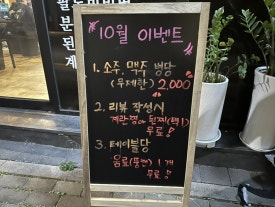 월
분
된
계
10월 이벤트
1. 소주, 맥주 병당
(무제한) 2,000
2. 리뷰 작성시
계란찜or 된찌(택1)
무료!
3. 테이블당
음료(통큰) 1개
무료!